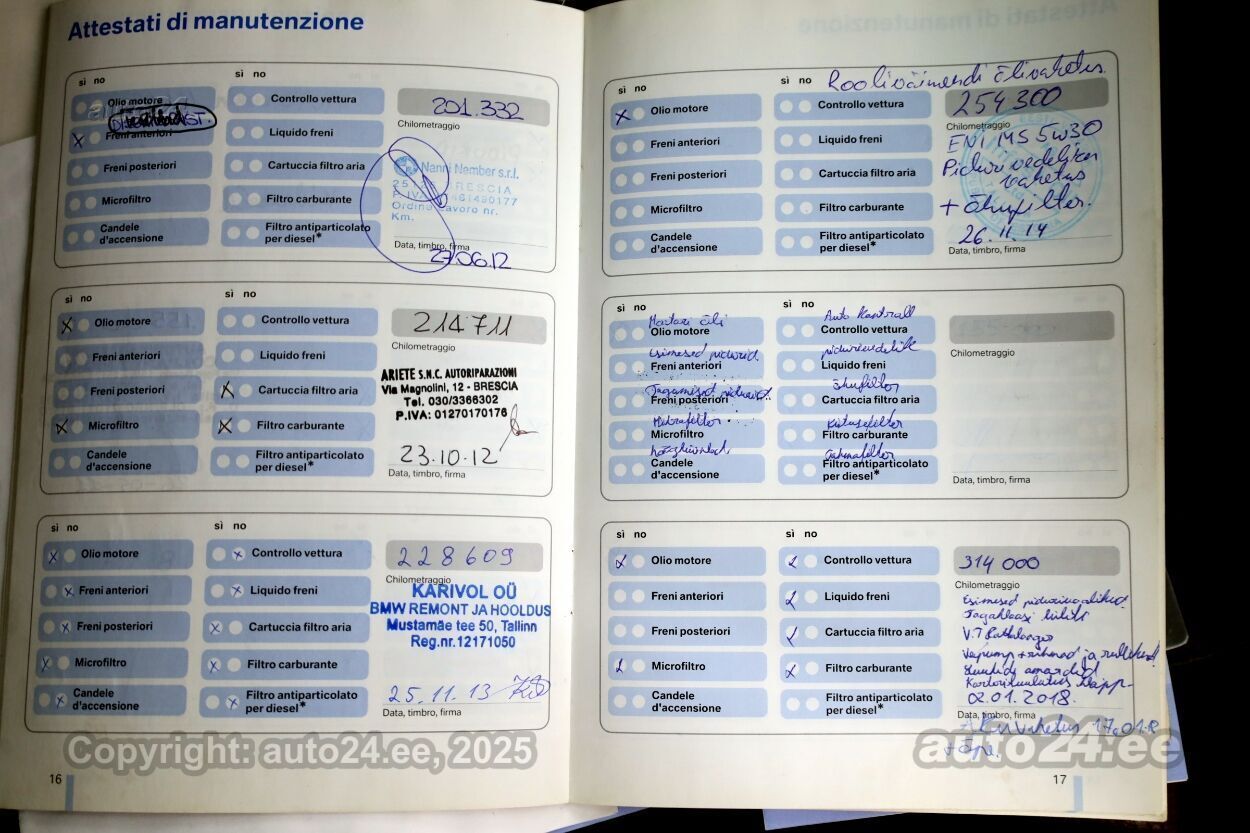 Attestati di manutenzione
sì no
sì no
Olio motore
Controllo vettura
201.332
Chilometraggio
Freni anteriori
Liquido freni
Freni posteriori
Cartuccia filtro aria
Nanni Nember s.r.l.
BRESCIA
Microfiltro
Filtro carburante
Ordine lavoro nr.
Km.
Candele
d'accensione
Filtro antiparticolato
per diesel*
Data, timbro, firma
27/06.12
sì no
sì no
Olio motore
Controllo vettura
214711
Chilometraggio
Freni anteriori
Liquido freni
ARIETE S.N.C. AUTORIPARAZIONI
Via Magnolini, 12 - BRESCIA
Tel. 030/3366302
P.IVA: 01270170176
Freni posteriori
Cartuccia filtro aria
Microfiltro
Filtro carburante
Candele
d'accensione
Filtro antiparticolato
per diesel*
23.10.12
Data, timbro, firma
sì no
sì no
Olio motore
Controllo vettura
228609
Chilometraggio
Freni anteriori
Liquido freni
KARIVOL OÜ
BMW REMONT JA HOOLDUS
Mustamäe tee 50, Tallinn
Reg.nr.12171050
Freni posteriori
Cartuccia filtro aria
Microfiltro
Filtro carburante
Candele
d'accensione
Filtro antiparticolato
per diesel*
25.11.13
Data, timbro, firma
Copyright: auto24.ee, 2025
16
Roolivõimendi õlivahetus.
sì no
sì no
Olio motore
Controllo vettura
254300
Chilometraggio
Freni anteriori
Liquido freni
ENI MS 5w30
Freni posteriori
Cartuccia filtro aria
Piduri vedeliku
vahetus
Microfiltro
Filtro carburante
+ õhufilter.
Candele
d'accensione
Filtro antiparticolato
per diesel*
26.11.14
Data, timbro, firma
sì no
sì no
Mootori õli
Olio motore
Auto kontroll
Controllo vettura
Chilometraggio
Esimesed pidurid.
Freni anteriori
pidurivedelik
Liquido freni
Tagumised pidurid.
Freni posteriori
õhufilter
Cartuccia filtro aria
Microfiltro
Kütusefilter
Filtro carburante
Candele
d'accensione
Filtro antiparticolato
per diesel*
Data, timbro, firma
sì no
sì no
Olio motore
Controllo vettura
314 000
Chilometraggio
Freni anteriori
Liquido freni
Esimesed
Freni posteriori
Cartuccia filtro aria
Microfiltro
Filtro carburante
Candele
d'accensione
Filtro antiparticolato
per diesel*
02.01.2018.
Data, timbro, firma
auto24.ee
17